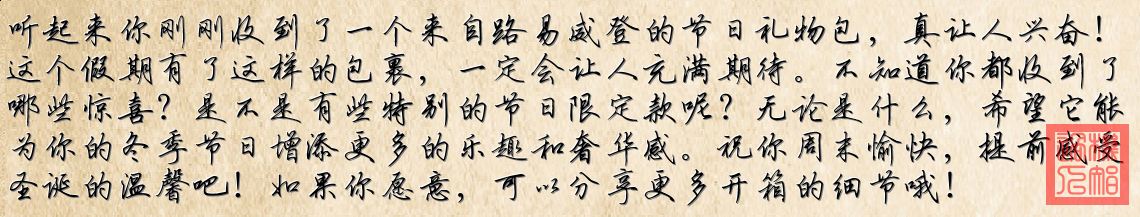 听起来你刚刚收到了一个来自路易威登的节日礼物包，真让人兴奋！
这个假期有了这样的包裹，一定会让人充满期待。不知道你都收到了
哪些惊喜？是不是有些特别的节日限定款呢？无论是什么，希望它能
为你的冬季节日增添更多的乐趣和奢华感。祝你周末愉快，提前感受
圣诞的温馨吧！如果你愿意，可以分享更多开箱的细节哦！